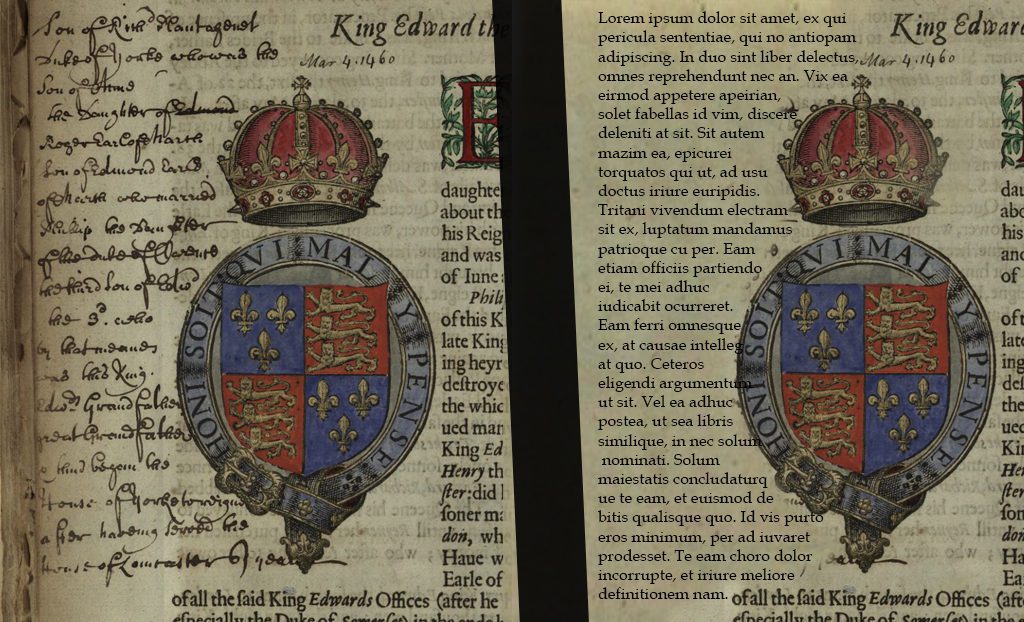 Son of Rich Plantagenet
Duke of Yorke who was the
Son of Anne
the Daughter of Edmond
Roger Earl of March
Son of Edmond Earl
of March who married
Philip the Daughter
of the Duke of Clarence
the third Son of
the 3d. who
by that meanes
was this King
Edw: Grandfather
great Grandfather
begun the
House of Yorke to reigne
after having served the
House of Lancaster
King Edward the
Mar 4. 1460
E
HONI SOIT QVI MAL Y PENSE
daughte
about th
his Reig
and was
of Iune
Phili
of this K
late King
ing heyr
deſtroye
the whic
ued mar
King Ed
Henry th
ſter: did
ſoner ma
don, wh
Haue w
Earle of
of all the ſaid King Edwards Offices (after he
eſpecially the Duke of Somerſet) in the ends
Lorem ipsum dolor sit amet, ex qui
pericula sententiae, qui no antiopam
adipiscing. In duo sint liber delectus,
omnes reprehendunt nec an. Vix ea
eirmod appetere apeirian,
solet fabellas id vim, discere
deleniti at sit. Sit autem
mazim ea, epicurei
torquatos qui ut, ad usu
doctus iriure euripidis.
Tritani vivendum electram
sit ex, luptatum mandamus
patrioque cu per. Eam
etiam officiis partiendo
ei, te mei adhuc
iudicabit ocurreret.
Eam ferri omnesque
ex, at causae intelleg
at quo. Ceteros
eligendi argumentum
ut sit. Vel ea adhuc
postea, ut sea libris
similique, in nec solum
nominati. Solum
maiestatis concludaturq
ue te eam, et euismod de
bitis qualisque quo. Id vis purto
eros minimum, per ad iuvaret
prodesset. Te eam choro dolor
incorrupte, et iriure meliore
definitionem nam.
King Edward
Mar 4. 1460
HONI SOIT QVI MAL Y PENSE
dau
abo
his
and
of I
of t
late
ing
deſt
the
ued
Kin
Hen
ſter
ſon
don
Ha
Ear
of all the ſaid King Edwards Offices (a
eſpecially the Duke of Somerſet) in